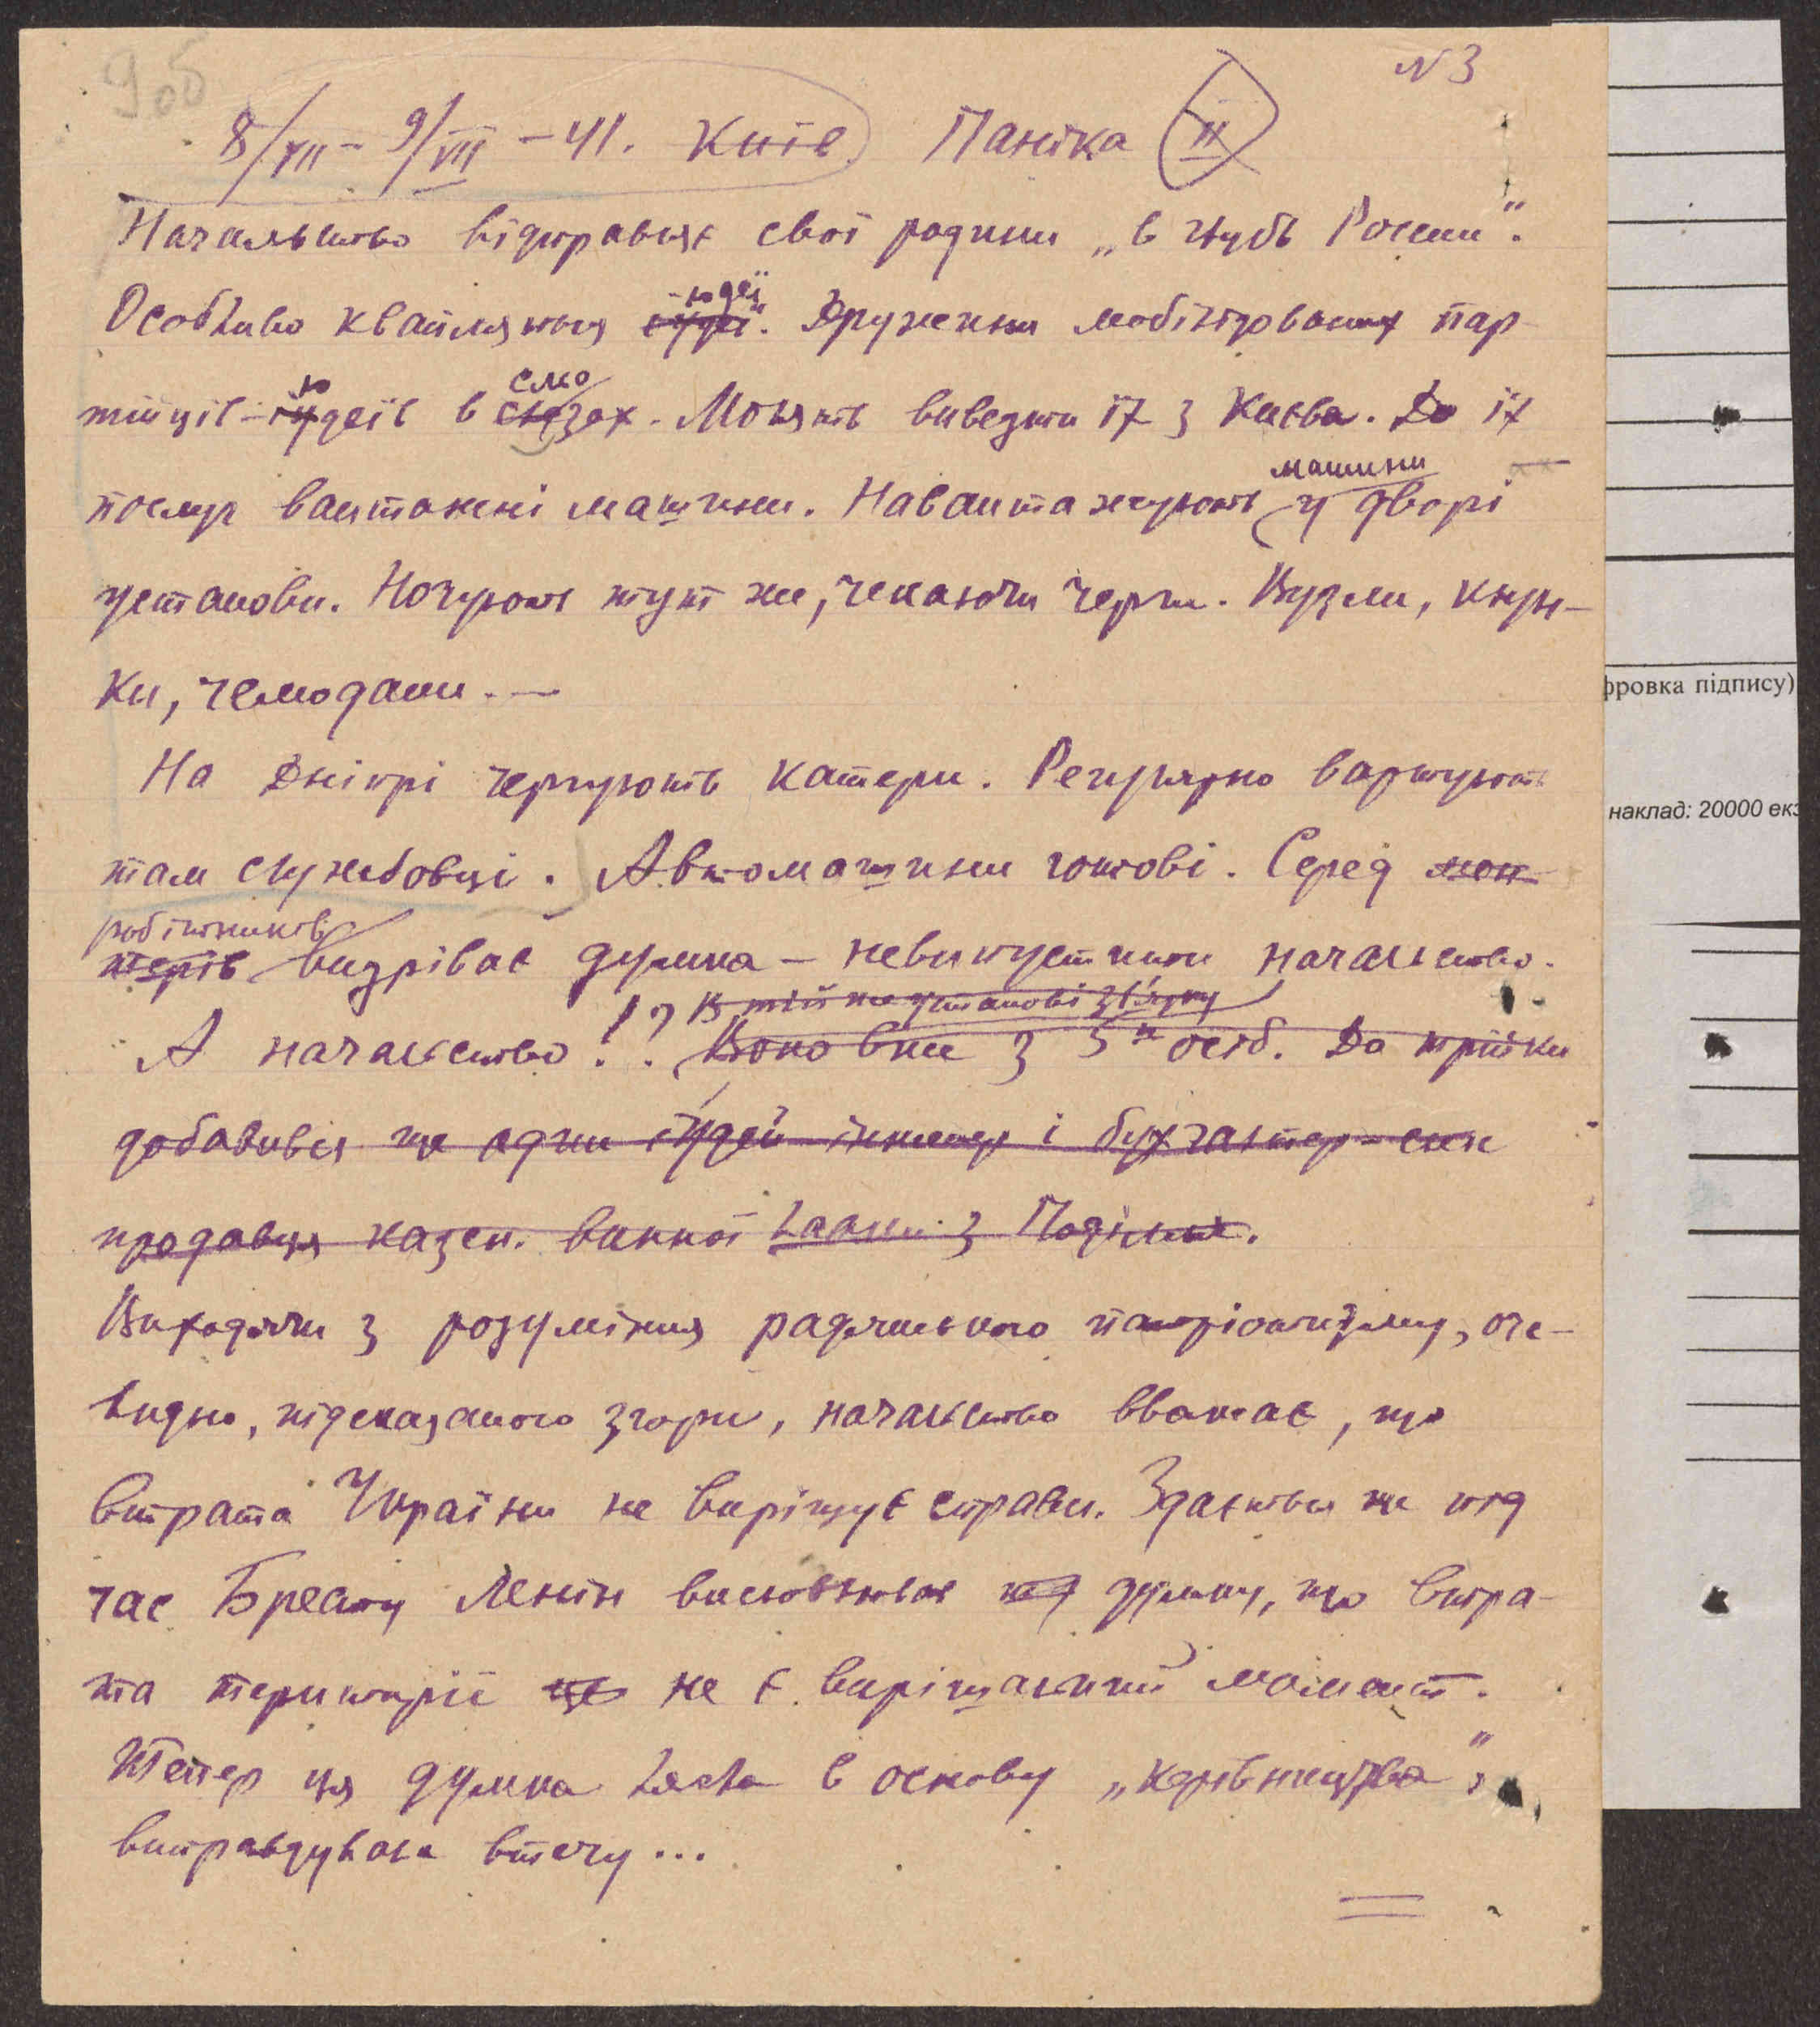 9об
N 3
8/VII – 9/VII – 41. Київ. Паніка II
Начальство відправляє свої родини „в глубь России".
юдеї
Особливо квапляться іудеї. Дружини мобілізованих пар-
ю сльо
тійців-іудеїв в слезах. Молять вивезти їх з Києва. До їх
машини
послуг вантажні машини. Навантажують у дворі
установи. Ночують тут же, чекаючи черги. Вузли, клун-
ки, чемодани. —
На Дніпрі чергують катери. Регулярно вартують
там службовці. Автомашини готові. Серед мон-
робітників
терів визріває думка – не випустити начальство.
В тій же установі зв'язку
А начальство!? Воно вже з 5х осіб. До трійки
добавився ще один іудей інженер і бухгалтер – син
продавця казен. винної лавки з Поділля.
Виходячи з розуміння радянського патріотизму, оче-
видно, підсказаного згори, начальство вважає, що
витрата України не вирішує справи. Здається ще під
час Бресту Ленін висловлював думку, що витра-
та території це не є вирішальний момент.
Тепер ця думка лягла в основу „керівництва",
виправдувала втечу...
фровка підпису)
наклад: 20000 екз